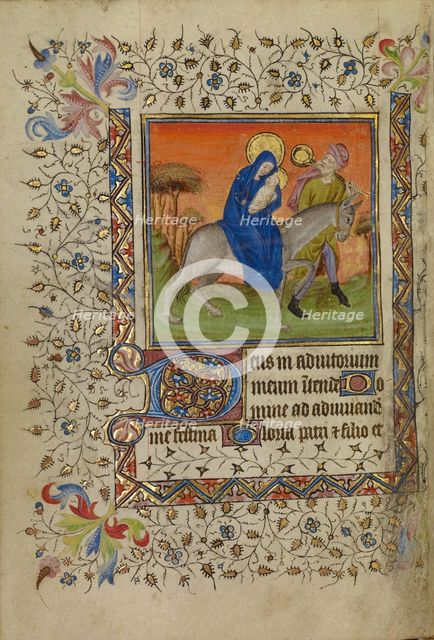 Heritage Heritage
Heritage Heritage
Heritage Heritage
eus in adiutorium
meum Intende Do
mine ad adiuvand
me festina Gloria patri & filio et